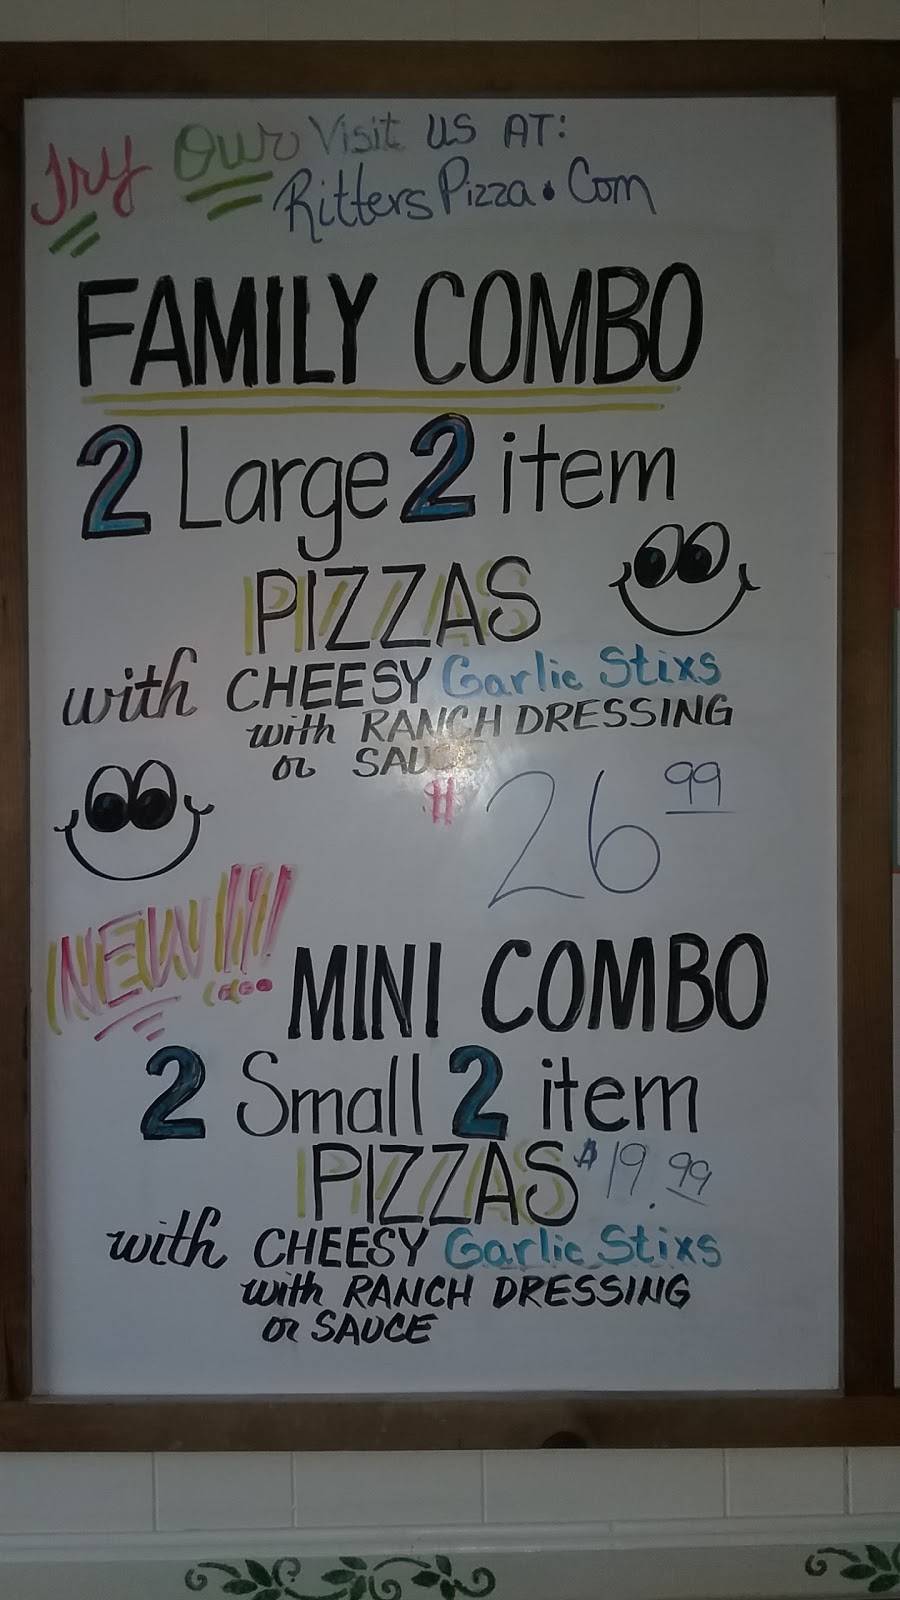 Try Our Visit US AT:
RittersPizza.Com
FAMILY COMBO
2 Large 2 item
PIZZAS
with CHEESY Garlic Stixs
with RANCH DRESSING
or SAUCE
$26 99
NEW!!!
MINI COMBO
2 Small 2 item
PIZZAS $19.99
with CHEESY Garlic Stixs
with RANCH DRESSING
or SAUCE